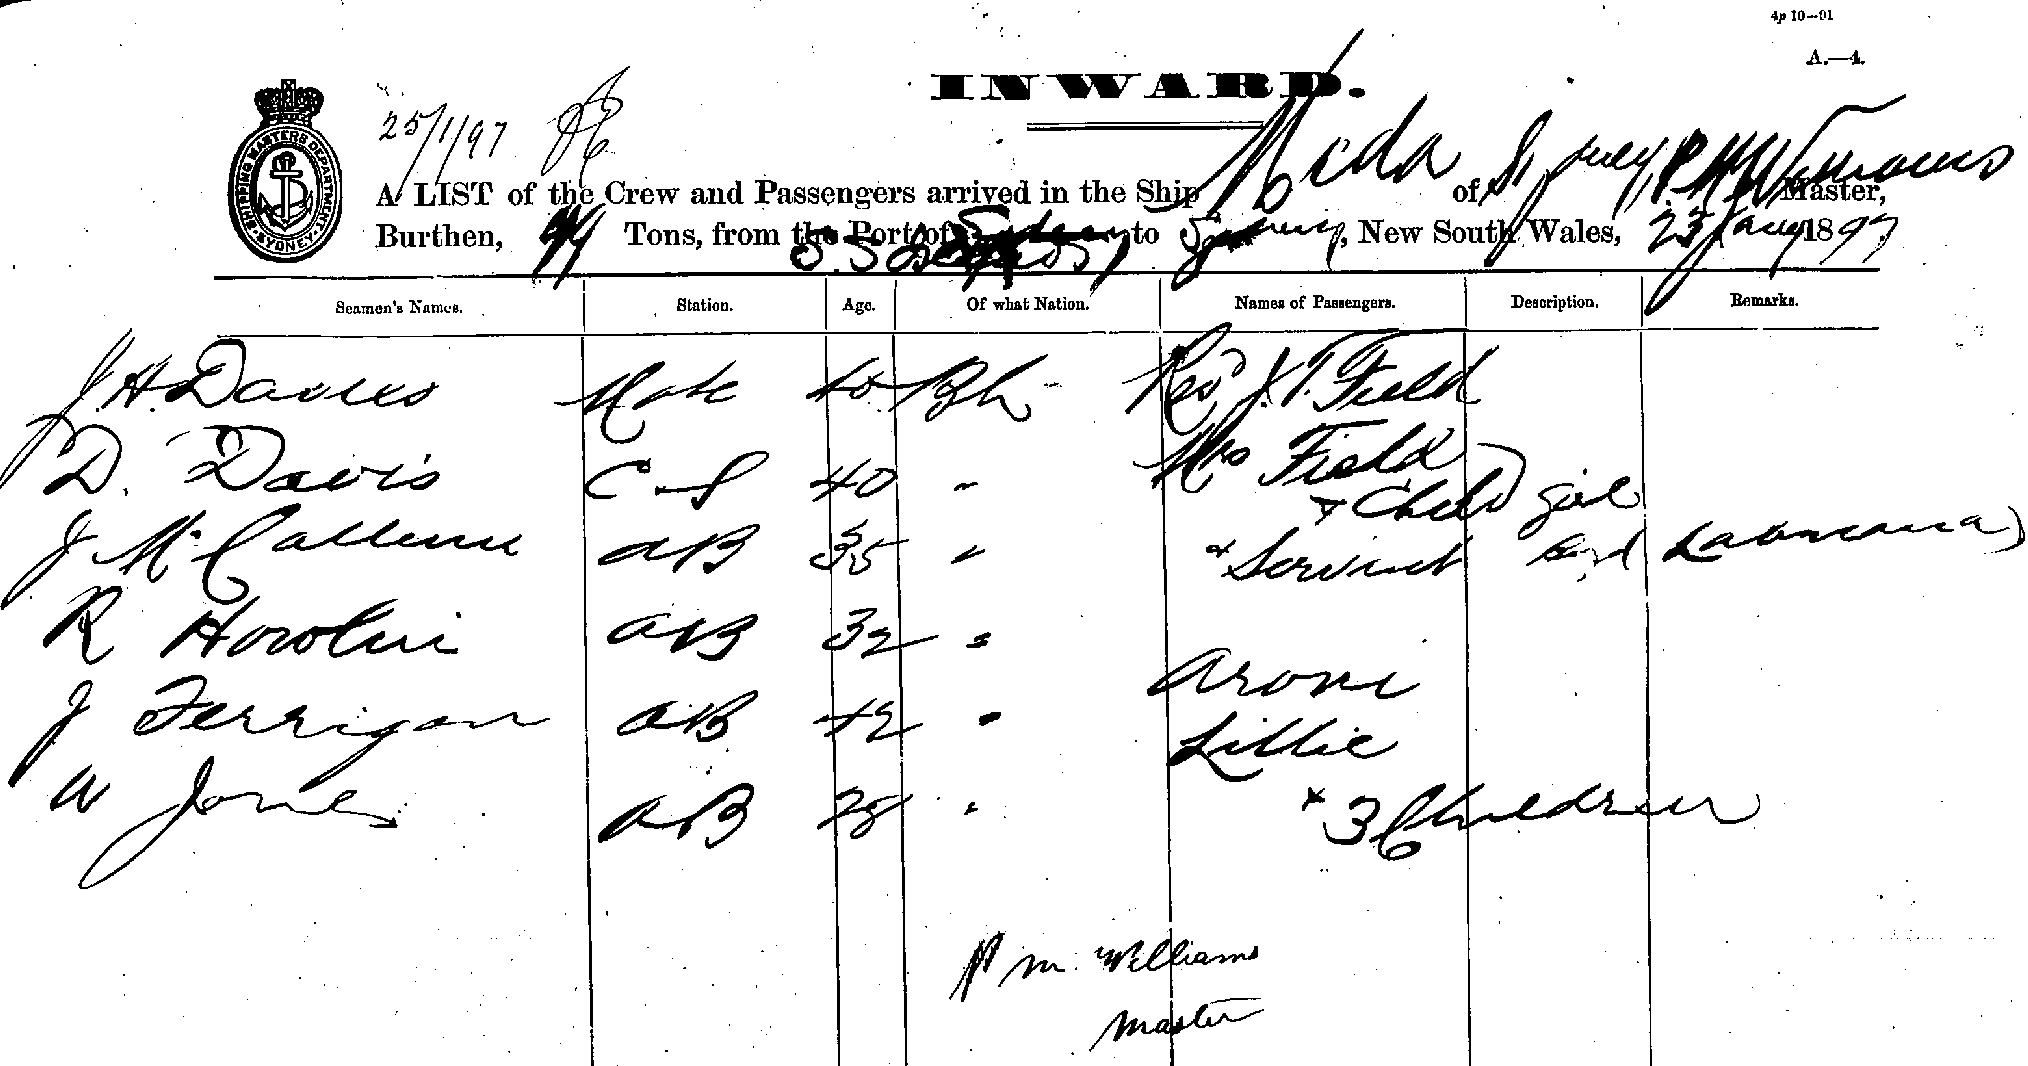 4p 10—91
A.—4.
INWARD.
SHIPPING MASTERS DEPARTMENT SYDNEY
25/1/97
A LIST of the Crew and Passengers arrived in the Ship Meda of Sydney, P. M. Williams Master,
Burthen, Tons, from the Port of S. S. to Sydney, New South Wales, 23 Jany 1897
Seamen's Names. Station. Age. Of what Nation. Names of Passengers. Description. Remarks.
J. H. Davies Mate 40 Bh - Revd J. T. Field
D. Davis C & S 40 " Mrs Field
+ Child girl
J McCallum AB 35 " + Servant
R Howlin AB 32 "
Aroni
J Ferrigan AB 42 "
Lillie
W Jones AB 28 " + 3 Children
P M. Williams
Master